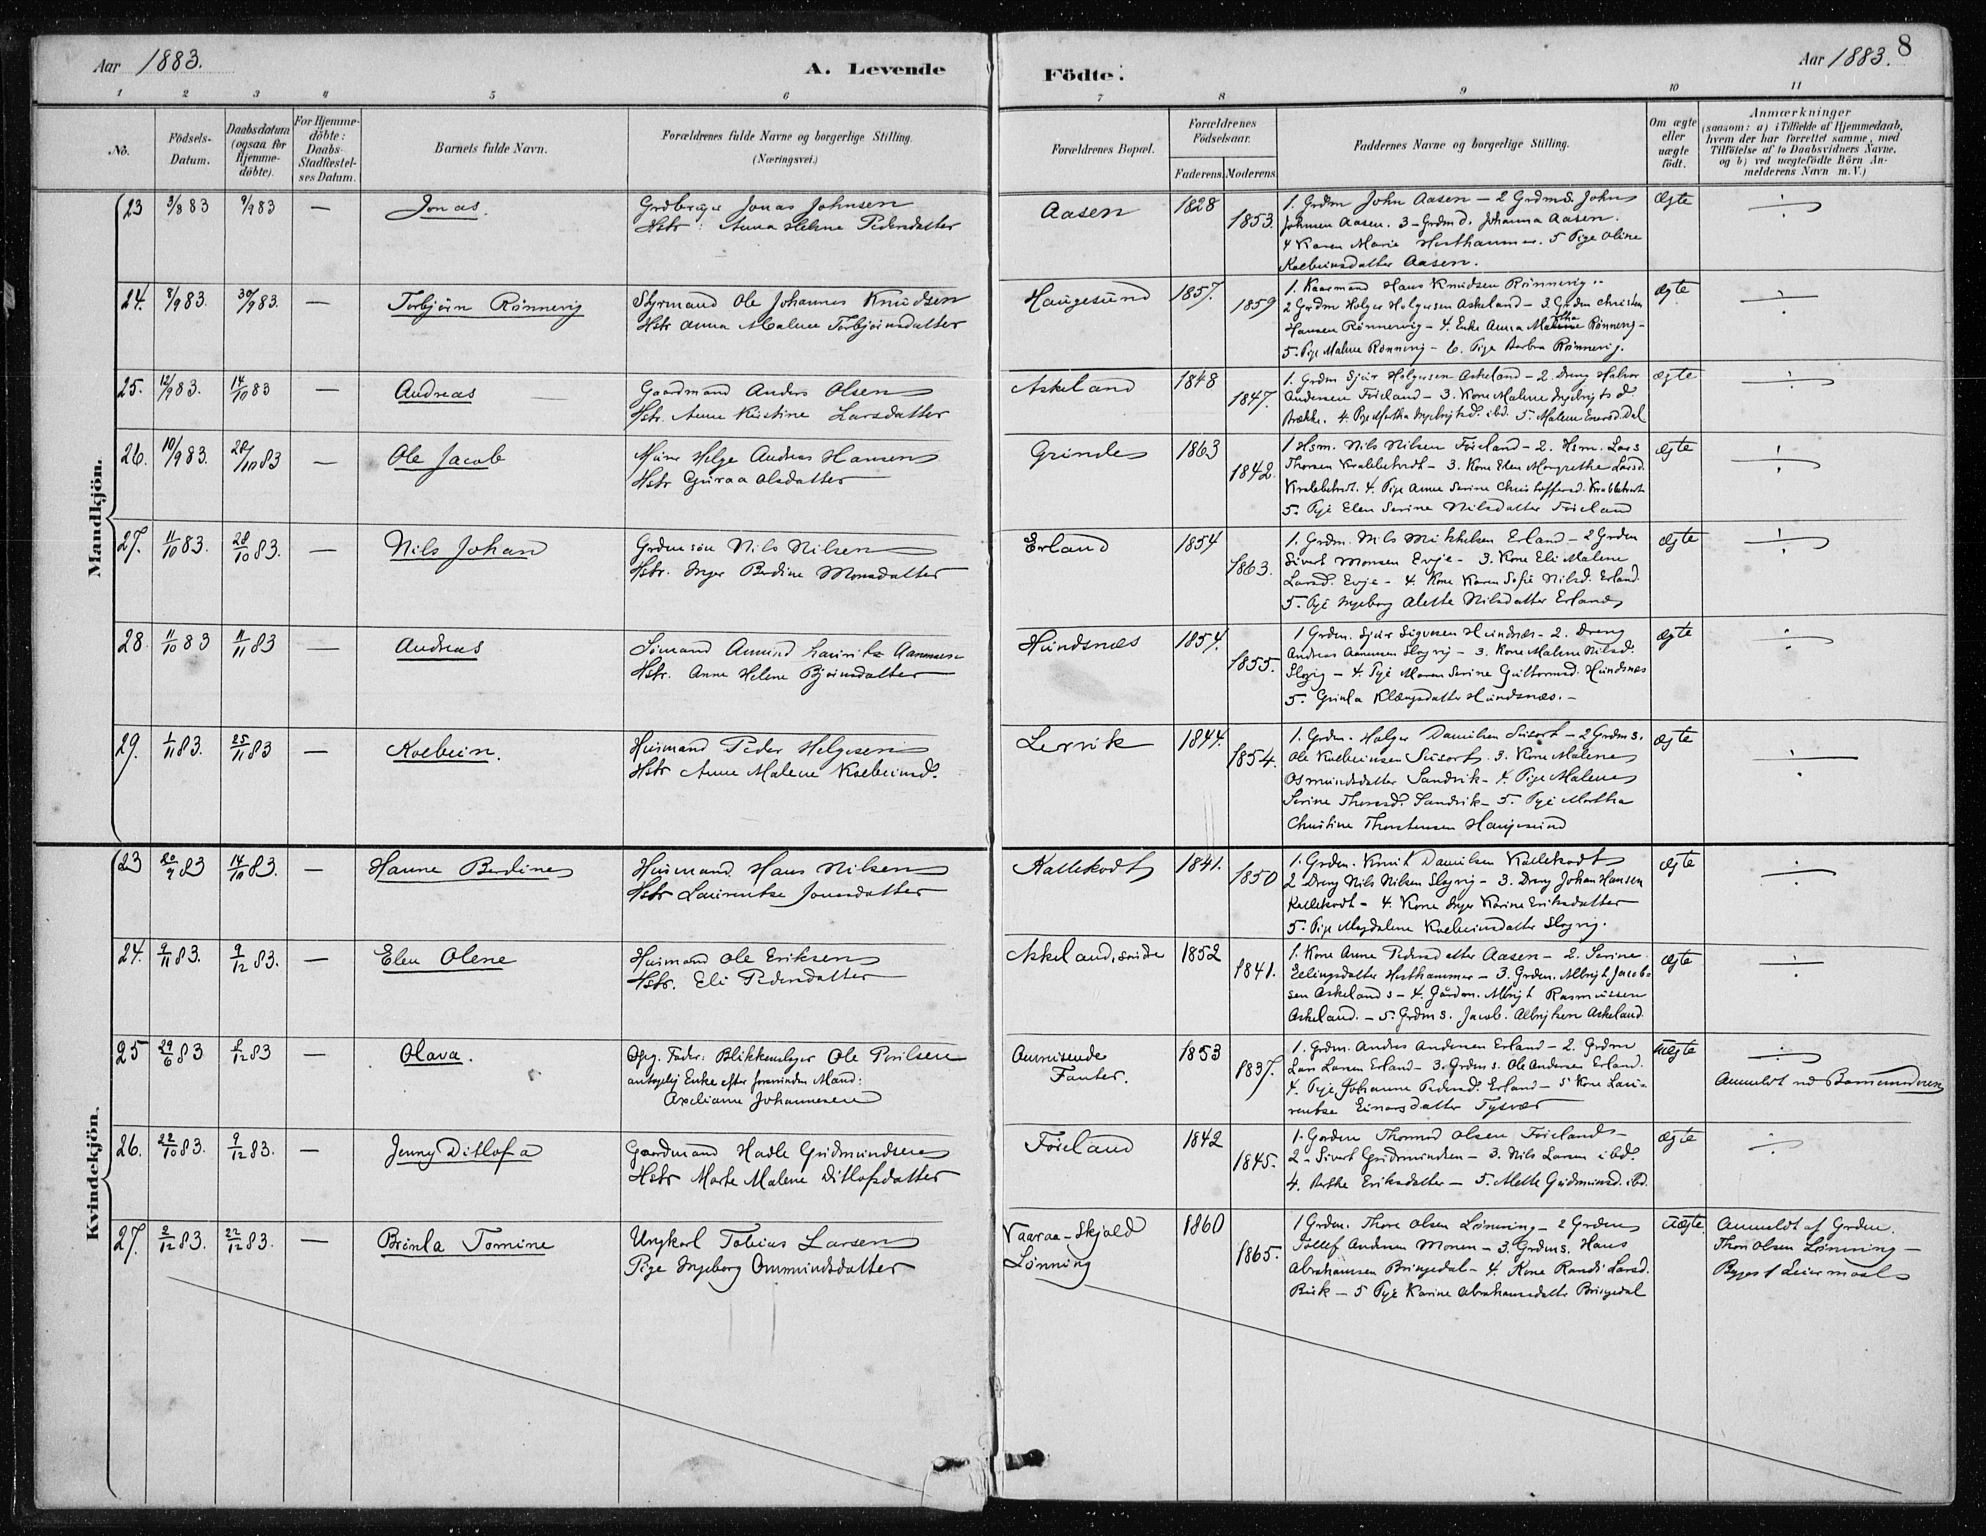 Aar 1883.
A. Levende
Födte.
Aar 1883.
8
1 2 3 4 5 6 7 8 9 10 11
No.
Födsels-Datum.
Daabsdatum (ogsaa for Hjemme-döbte).
For Hjemme-döbte: Daabs-Stadfæstel-ses Datum.
Barnets fulde Navn.
Forældrenes fulde Navne og borgerlige Stilling.
(Næringsvei.)
Forældrenes Bopæl.
Forældrenes Födselsaar.
Faderens. Moderens.
Faddernes Navne og borgerlige Stilling.
Om ægte eller uægte födt.
Anmærkninger
(saasom: a) i Tilfælde af Hjemmedaab, hvem der har forrettet samme, med Tilföielse af to Daabsvidners Navne, og b) ved uægtefödte Börn An-melderens Navn m. V.)
Mandkjön.
23 3/8 83 9/9 83 — Jonas. Jonas Johnsen Aasen 1828 Ægte
Hstr. Anna Helene Pedersdatter 1853.
1. Grdm John Aasen — 2 Grdms. John
Johnsen Aasen. 3 - Grdmd. Johanna Aasen.
4 Karen Marie Hesthammer. 5 Pige Oline
Kolbeinsdatter Aasen.
24. 8/9 83. 30/9 83. — Torbjörn Rönnevig Styrmand Ole Johannes Knudsen Haugesund 1857. ægte
Hstr Anna Malene Torbjörnsdatter 1859
1. Kaarmand Hans Knudsen Rönnevig
2 Grdm Holger Holgersen Askeland — 3. Grdm Christen
Hansen Rönnevig — 4. Enke Anna Rönnevig —
5. Pige Malene Rönnevig — 6. Pige Barbra Rönnevig.
25. 12/9 83. 14/10 83 — Andreas Gaardmand Anders Olsen Askeland 1848 ægte
Hstr. Anne Kistine Larsdatter 1847.
1. Grdm Sjur Holgersen Askeland — 2. Dreng Halvor
Andersen Föreland — 3. Kone Malene Ingebrigtsd
Brække. 4. Pige Martha Ingebrigtsd. ibd. 5. Malene Dal
26. 10/9 83. 28/10 83 — Ole Jacob Helge Andreas Hansen Grinde 1863 ægte
Hstr Guraa Olsdatter 1842.
1 Hsm. Nils Nilsen Föreland — 2. Hsm. Lars
Thorsen — 3. Kone Elen Margrethe Larsd.
4. Pige Anne Serine Christoffersd.
5. Pige Elen Serine Nilsdatter Föreland
27. 11/10 83. 28/10 83. — Nils Johan Grdmsön Nils Nilsen Erland 1854 ægte
Hstr. Inger Berdine Monsdatter 1863.
1. Grdm. Nils Mikkelsen Erland — 2 Grdm
Sivert Monsen Evje — 3. Kone Eli Malene
Larsd. Evje — 4. Kone Karen Sofie Nilsd. Erland.
5. Pige Ingeborg Alette Nilsdatter Erland
28. 11/10 83 11/11 83 — Andreas Sömand Amund Lauritz Aamunsen Hundsnæs 1854. ægte
Hstr. Anne Helene Björnsdatter 1855.
1 Grdm. Sjur Sigvesen Hundsnæs — 2. Dreng
Andreas Aamunsen Slogvig — 3. Kone Malene Nilsd.
Slogvig — 4. Pige Maren Serine Guttormsd. Hundsnæs
5. Grinla Klængsdatter Hundsnæs. —
29. 1/11 83. 25/11 83 — Kolbein. Husmand Peder Helgesen Lervik 1844. ægte
Hstr Anne Malene Kolbeinsd. 1854.
1. Grdm. Holger Danielsen — 2 Grdms.
Ole Kolbeinsen 3. Kone Malene
Osmundsdatter Sandvik — 4. Pige Malene
Serine Thoresd. Sandvik — 5. Pige Martha
Christine Thorstensen Haugesund
Kvindekjön.
23 20/9 83 14/10 83. — Hanne Berdine Husmand Hans Nilsen Kallekodt 1841. ægte
Hstr Laurentse Jonesdatter 1850
1. Grdm. Knut Danielsen Kallekodt
2 Dreng Nils Nilsen Slogvig — 3. Dreng Johan Hansen
Kallekodt — 4. Kone Inger Karine Eriksdatter
5. Pige Magdalene Kolbeinsdatter Slogvig.
24. 2/11 83. 9/12 83. — Elen Olene Husmand Ole Eriksen Askeland, 1852 ægte
Hstr. Eli Pedersdatter 1841.
1. Kone Anne Pedersdatter Aasen — 2. Serine
Ellingsdatter Hesthammer — 3. Grdm. Albrigt Jacob-
sen Askeland — 4. Gårdm. Albrigt Rasmussen
Askeland. — 5. Grdms. Jacob Albrigtsen Askeland.
25 29/6 83 2/12 83 — Olava. Opg. Fader: Blikkenslager Ole Poulsen Omreisende 1853 uægte
antagelig Enke efter forsvunden Mand: Fanter. 1837.
Axeliane Johannesen
1. Grdm. Anders Andersen Erland — 2. Grdm
Lars Larsen Erland — 3. Grdms. Ole Andersen Erland.
4. Pige Johanne Pedersd. Erland — 5 Kone Lau-
rentse Einarsdatter Tysvær
Anmeldt ved
26. 22/10 83. 9/12 83. — Jenny Ditlofa Gaardmand Hadle Gudmundsen Föreland 1842 ægte
Hstr Marte Malene Ditlofsdatter 1845.
1. Gardm Thormod Olsen Föreland —
2 — Sivert Gudmundsen — 3. Nils Larsen ibd.
4. Berthe Eriksdatter — 5. Mette Gudmundsd. ibd.
27. 2/12 83. 22/12 83. — Brinla Tomine Ungkarl Tobias Larsen Vaaraa - Skjold 1860 uægte
Pige Ingeborg Ommundsdatter Lönning 1865.
1 Grdm. Thore Olsen Lönning — 2 Grdm
Tollef Andersen Monen — 3. Grdms. Hans
Abrahamsen Bringedal — 4. Kone Randi Larsd.
— 5 Pige Karine Abrahamsdatter Bringedal
Anmeldt af Grdm.
Thore Olsen Lönning —
Begges 1 Leiermaal